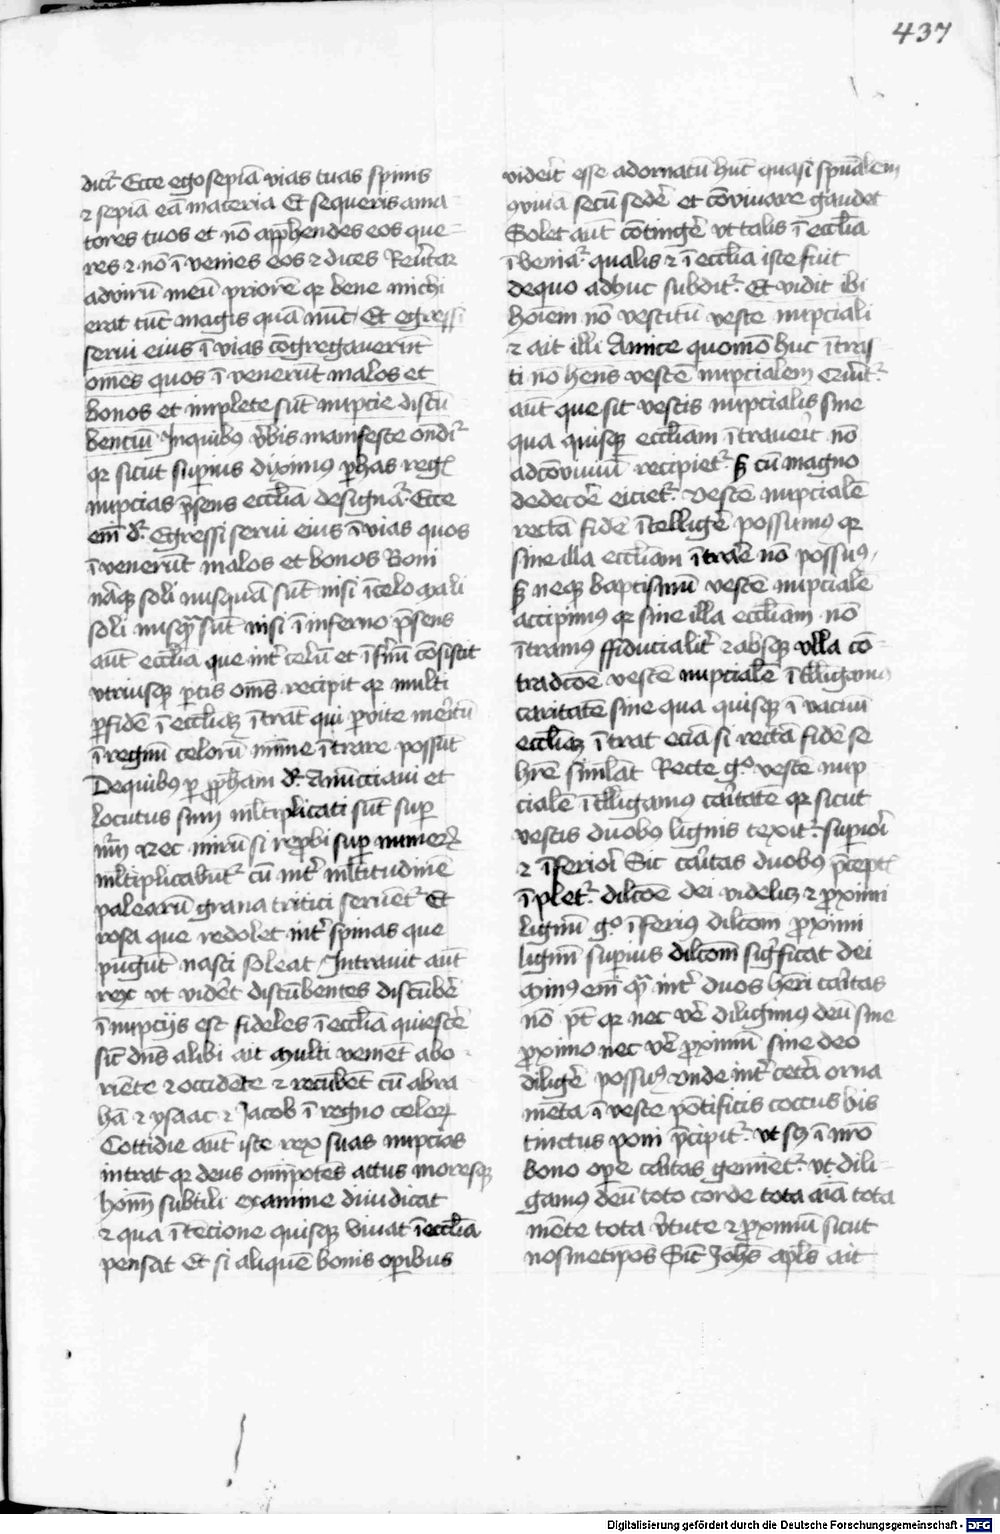 437
dict̄ Ecce ego sepiā vias tuas spinis
⁊ sepiā eā maceria Et sequeris ama
tores tuos et nō app̄hendes eos que=
res ⁊ nō īvenies eos ⁊ dices Reu̓tar
ad virū meū priorē qr bene michi
erat tūc magis quā nūc Et egressi
serui eius ī vias cōgregauerūt
omēs quos ī venerūt malos et
bonos et implete sūt nupcie discū
benciū In quibꝰ v̓bis manifeste ondit̓
qr sicut supius diximꝰ p has reg
nupcias p̄sens eccl̄ia designat̓. Ecce
em̄ dr̄. Egressi serui eius ī vias quos
ī venerūt malos et bonos Boni
nāqꝫ soli nusquā sūt nisi ī celo mali
soli nusqᵃ sūt nisi ī inferno p̄sens
aūt eccl̄ia que int̓ celū et īfernū cōsistit
vtriusqꝫ ptis oms̄ recipit qr multi
p fidē ī eccl̄iaꝫ ītrāt qui p vite meritū
ī regnū celorū mīme ītrare possūt
De quibꝰ p pp̄ham dr̄. Anūcciaui et
locutus sum ml̄tiplicati sūt sup
nūm Nec mirū si rep̱bi sup numerꝝ
ml̄tiplicabūt̓ cū int̓ ml̄titudine
palearū grana tritici seruēt̓ Et
rosa que redolet int̓ spinas que
pungūt nasci soleat Intrauit aūt
rex vt vidēt discūbentes discūbē
ī nupcijs est fideles ī eccl̄ia quiescē
sic̄ dn̄s alibi ait multi veniēt ab o
riēte ⁊ occidēte ⁊ recūbēt cū abra
hā ⁊ ysaac ⁊ Jacob ī regno celoꝝ
Cottidie aūt iste rex suas nupcias
intrat qr deus omīpotēs actus moresqꝫ
hoīm subtili examine diiudicat
⁊ qua ī tēcione quisqꝫ viuat ī eccl̄ia
pensat Et si aliquē bonis opibus
viderit esse adornatū hūc quasi spūalem
ꝯviuā secū sedē et cōviuare gaudet
Solet aūt cōtingē vt talis ī eccl̄ia
ī veniat̓ qualis ⁊ ī eccl̄ia iste fuit
de quo adhuc subdit̓. Et vidit ibi
hoīem nō vestitū veste nupciali
⁊ ait illi Amice quomō huc ītras
ti nō hēns vestē nupcialem
aūt que sit vestis nupcialis sine
qua quisqꝫ eccl̄iam ītrauerit nō
ad cōviuiū recipiet̓. sꝫ cū magno
dedecore eiciet̓. Vestē nupcialē
rectā fidē ītelligē possumꝰ qr
sine illa eccl̄iam ītraē nō possuꝰ
sꝫ neqꝫ baptismū vestē nupcialē
accipimꝰ qr sine illa eccl̄iam nō
ītramꝰ ffiducialit̓ ⁊ absqꝫ vlla cō=
tradcōe vestē nupcialē ītelligamꝰ
caritatē sine qua quisqꝫ ī vacuū
eccl̄iaꝫ ītrat eciā si rectā fidē se
hr̄e simlāt Recte gº. veste nup
cialē ītelligamꝰ caritatē qr sicut
vestis duobꝰ lignis texit̓. supiori
⁊ īferiori Sic caritas duobus p̄cept
īplet̓. dilcōe dei videlicꝫ ⁊ p̱ximi
lignū gº. īferius dilcōm p̱ximi
lignū superius dilcōm sigficat dei
minꝰ em̄ qᵃ int̓ duos hr̄i caritas
nō pt̄ qr nec vē diligimꝰ deū sine
p̱ximo nec vē p̱ximū sine deo
diligē possuꝰ Vnde int̓ cet̓a orna
mēta ī veste pōtificis coccus bis
tinctus poni p̄cipit̓. vt sꝫ ī nr̄o
bono opē caritas geminēt̓. vt dili
gamꝰ deū toto corde tota aīa tota
mēte tota v̓tute ⁊ p̱ximū sicut
nosmetip̄os Sic̄ Joh̄s apl̄s ait
Digitalisierung gefördert durch die Deutsche Forschungsgemeinschaft - DFG